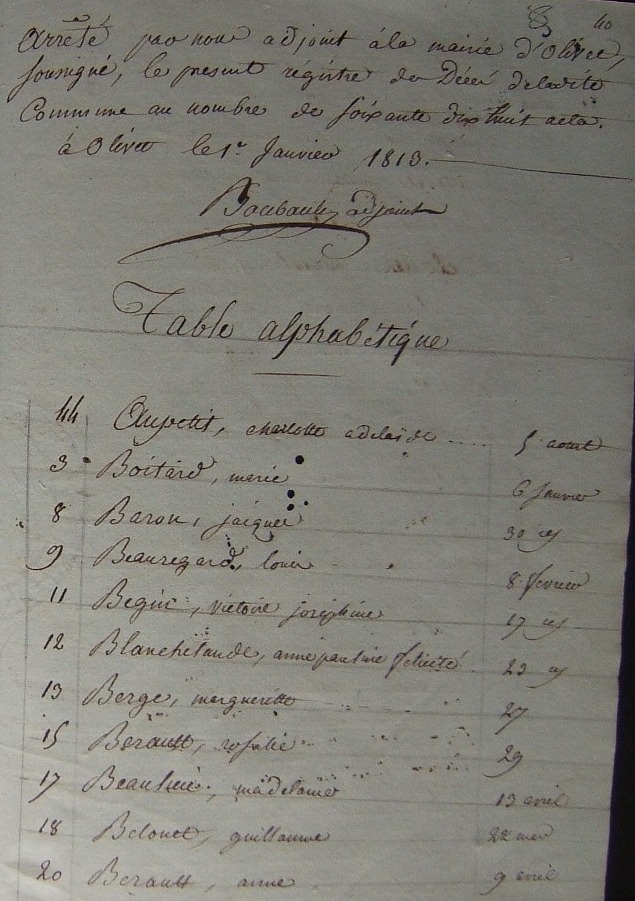 40
Arrêté par nous adjoint à la mairie d'Olivet,
soussigné, le present régistre de Décès de ladite
Commune au nombre de soixante dix huit actes.
à Olivet le 1er Janvier 1813.
adjoint
Table alphabétique
44 Aupetit, charlotte adelaïde 5 aout
3 Boitard, marie 6 Janvier
8 Baron, jacques 30
9 Beauregard, louis 8 fevrier
11 victoire joséphine 17
12 Blanchelande, anne pauline félicité 23
13 Berge, margueritte 27
15 Berault, rosalie 29
17 madelaine 13 avril
18 guillaume 22
20 Berault, anne 9 avril